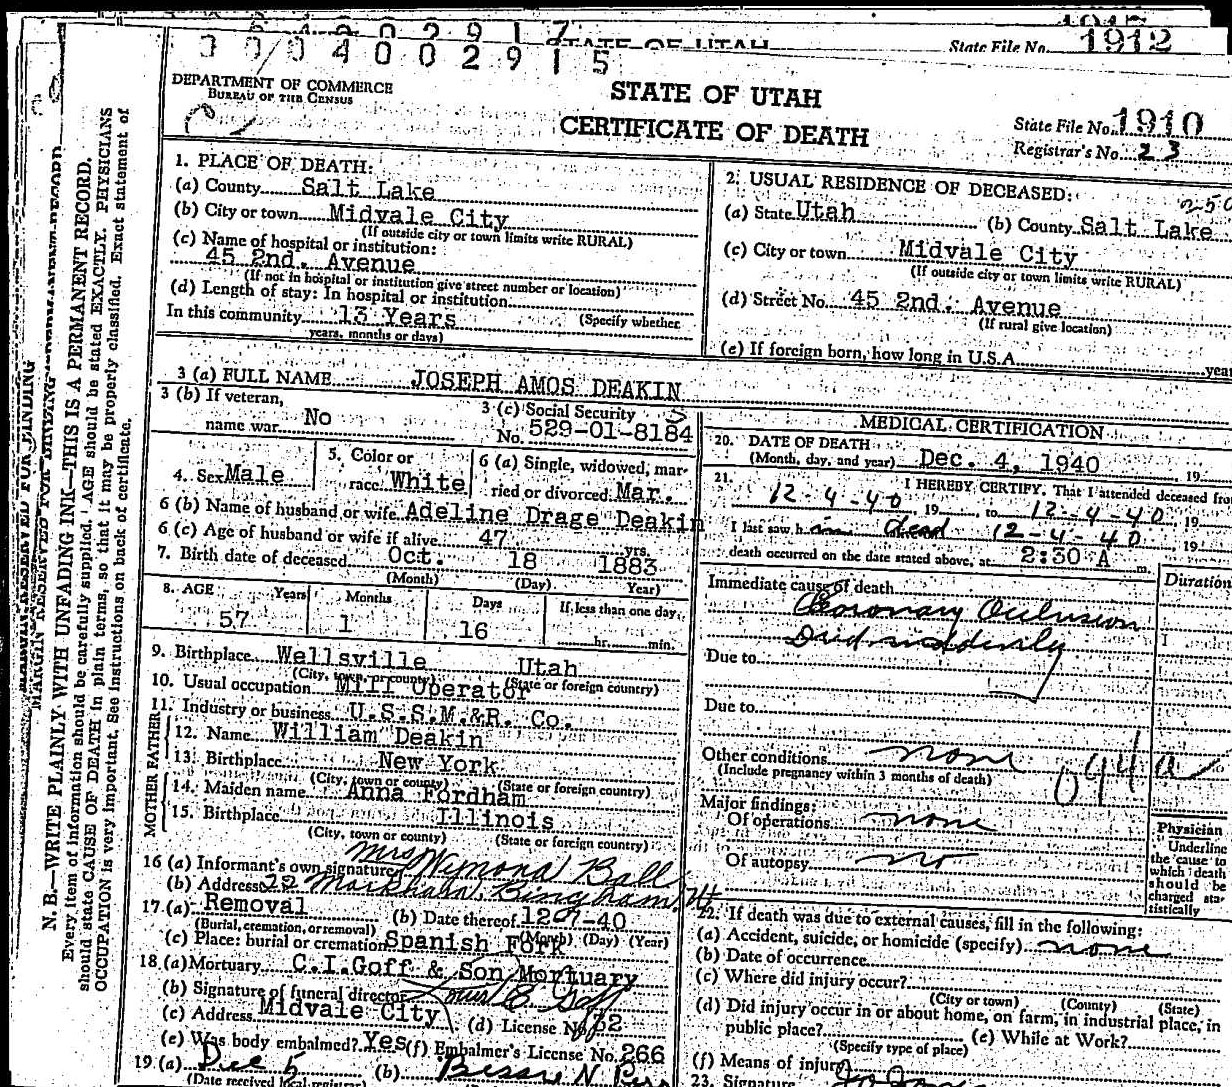 STATE OF UTAH
State File No. 1912
3 0 0 4 0 0 2 9 1 5
DEPARTMENT OF COMMERCE
BUREAU OF THE CENSUS
STATE OF UTAH
CERTIFICATE OF DEATH
State File No. 1910
Registrar's No. 23
MARGIN RESERVED FOR BINDING
N. B.—WRITE PLAINLY WITH UNFADING INK—THIS IS A PERMANENT RECORD.
Every item of information should be carefully supplied. AGE should be stated EXACTLY. PHYSICIANS
should state CAUSE OF DEATH in plain terms, so that it may be properly classified. Exact statement of
OCCUPATION is very important. See instructions on back of certificate.
1. PLACE OF DEATH:
(a) County Salt Lake
(b) City or town Midvale City
(If outside city or town limits write RURAL)
(c) Name of hospital or institution:
45 2nd. Avenue
(If not in hospital or institution give street number or location)
(d) Length of stay: In hospital or institution
In this community 13 Years (Specify whether
years, months or days)
2. USUAL RESIDENCE OF DECEASED:
(a) State Utah (b) County Salt Lake
(c) City or town Midvale City
(If outside city or town limits write RURAL)
(d) Street No. 45 2nd. Avenue
(If rural give location)
(e) If foreign born, how long in U.S.A. year
3 (a) FULL NAME JOSEPH AMOS DEAKIN
3 (b) If veteran,
name war No
3 (c) Social Security
No. 529-01-8184
4. Sex Male
5. Color or
race White
6 (a) Single, widowed, mar-
ried or divorced Mar.
6 (b) Name of husband or wife Adeline Drage Deakin
6 (c) Age of husband or wife if alive 47 yrs.
7. Birth date of deceased Oct. 18 1883
(Month) (Day) Year)
8. AGE Years Months Days If less than one day
57 1 16 hr. min.
9. Birthplace Wellsville Utah
(City, town, or county) (State or foreign country)
10. Usual occupation Mill Operator
11. Industry or business U.S.S.M.&R. Co.
FATHER
12. Name William Deakin
13. Birthplace New York
(City, town or county) (State or foreign country)
MOTHER
14. Maiden name Anna Fordham
15. Birthplace Illinois
(City, town or county) (State or foreign country)
16 (a) Informant's own signature Mrs Wymond Ball
(b) Address 22 Markham, Bingham, Ut
17. (a) Removal (b) Date thereof
(Burial, cremation, or removal) (Month) (Day) (Year)
(c) Place: burial or cremation Spanish Fork
18 (a) Mortuary C.I.Goff & Son Mortuary
(b) Signature of funeral director
(c) Address Midvale City (d) License No.
(e) Was body embalmed? Yes (f) Embalmer's License No. 266
19 (a) Dec 5 (b) Bessie N
(Date received local registrar)
MEDICAL CERTIFICATION
20. DATE OF DEATH
(Month, day, and year) Dec. 4, 1940 19
21. I HEREBY CERTIFY, That I attended deceased from
12-4-40, 19 to 12-4-40, 19
I last saw him dead 12-4-40, 19
death occurred on the date stated above, at 2:30 A m.
Immediate cause of death Duration
Coronary Occlusion
Died suddenly
Due to
Due to
Other conditions none
(Include pregnancy within 3 months of death)
094 a
Major findings:
Of operations none
Of autopsy no
Physician
Underline
the cause to
which death
should be
charged sta-
tistically
22. If death was due to external causes, fill in the following:
(a) Accident, suicide, or homicide (specify) none
(b) Date of occurrence
(c) Where did injury occur?
(City or town) (County) (State)
(d) Did injury occur in or about home, on farm, in industrial place, in
public place? (e) While at Work?
(Specify type of place)
(f) Means of injury
23. Signature